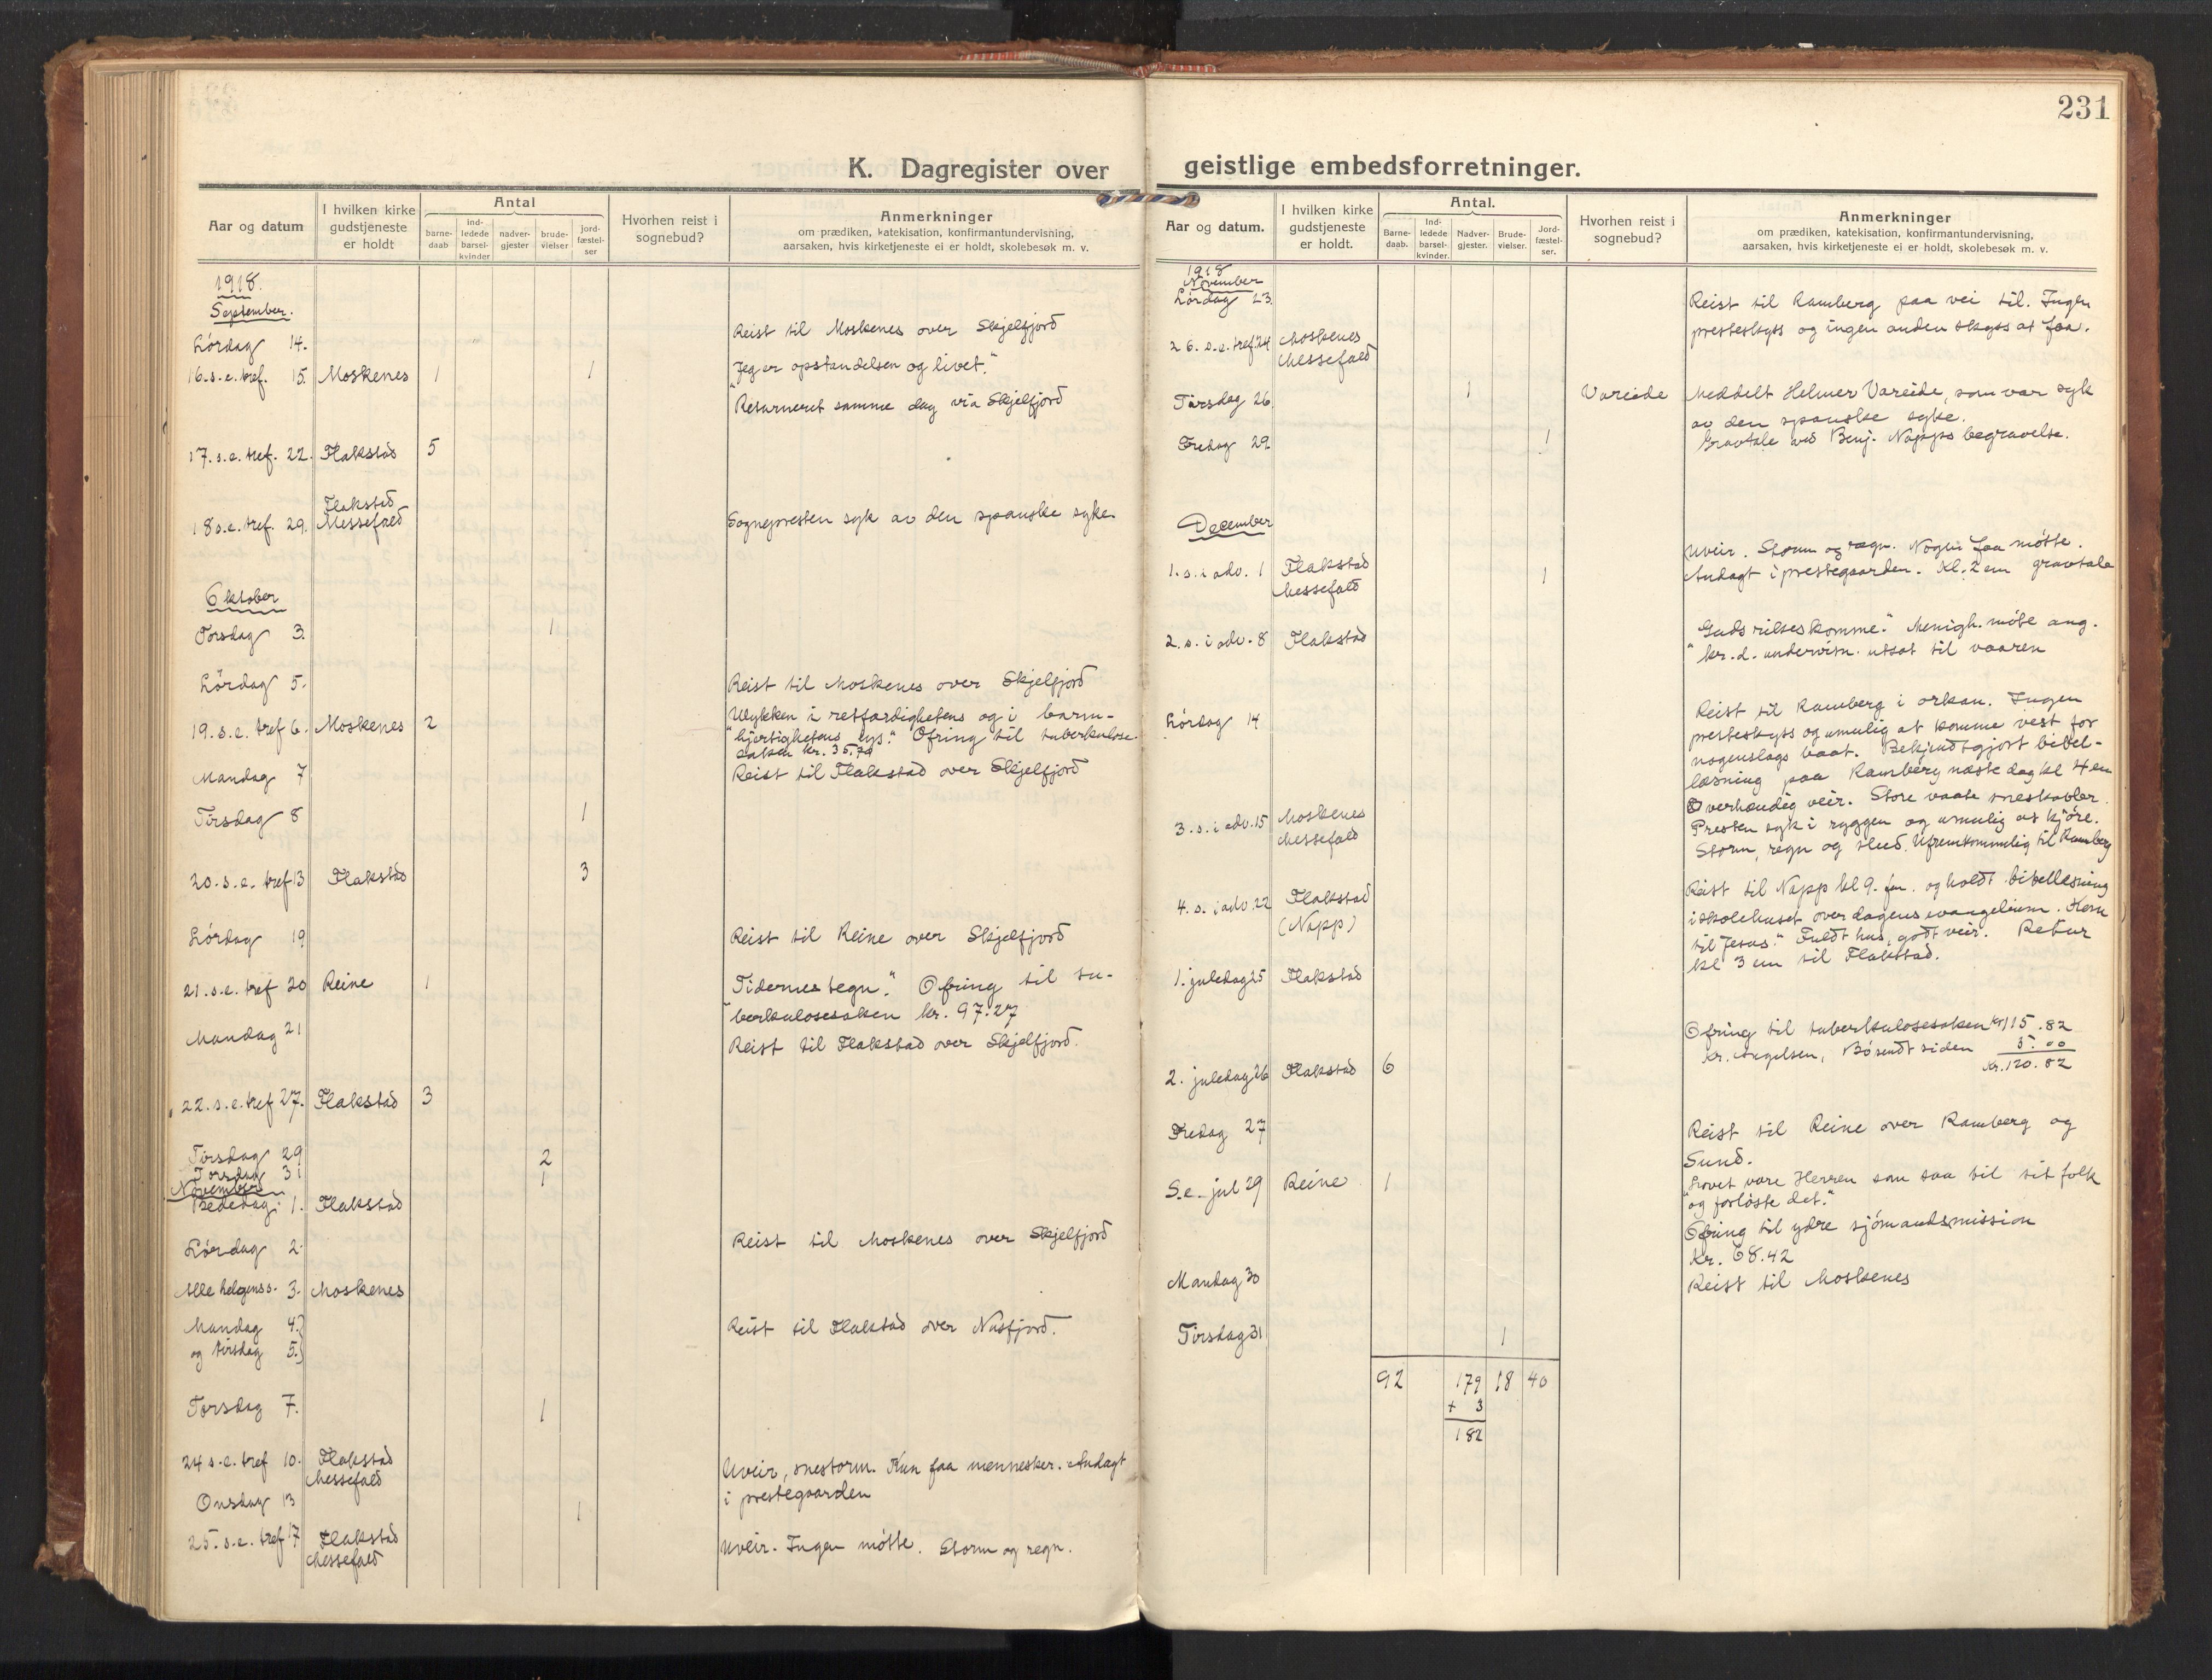 231
K. Dagregister over geistlige embedsforretninger.
Aar og datum
I hvilken kirke gudstjeneste er holdt
Antal
barne-daab
ind-ledede barsel-kvinder
nadver-gjester
brude-vielser
jord-fæstel-ser
Hvorhen reist i sognebud?
Anmerkninger
om prædiken, katekisation, konfirmantundervisning,
aarsaken, hvis kirketjeneste ei er holdt, skolebesøk m. v.
1918.
September.
Lördag 14. Reist til Moskenes over Skjelfjord
16. s. e. tref. 15. Moskenes 1 1 "Jeg er opstandelsen og livet."
Returneret samme dag via Skjelfjord
17. s. e. tref. 22. Flakstad 5
Flakstad
18 s. e. tref. 29. Messefald Sognepresten syk av den spanske syke.
Oktober
Torsdag 3. 1
Lördag 5. Reist til Moskenes over Skjelfjord
19. s. e. tref 6. Moskenes 2 "Ulykken i retfærdighetens og i barm-
hjertighetens lys." Ofring til tuberkulose-
saken kr. 35,70
Mandag 7 Reist til Flakstad over Skjelfjord
Tirsdag 8 1
20. s. e. tref 13 Flakstad 3
Lördag 19 Reist til Reine over Skjelfjord
21. s. e. tref 20 Reine 1 "Tidernes tegn." Ofring til tu-
berkulosesaken kr. 97.27
Mandag 21 Reist til Flakstad over Skjelfjord.
22. s. e. tref 27. Flakstad 3
Tirsdag 29 2
Torsdag 31 1
November
Bededag 1. Flakstad
Lördag 2. Reist til Moskenes over Skjelfjord
Alle helgens s. 3. Moskenes
Mandag 4.
og tirsdag 5. Reist til Flakstad over Nusfjord.
Torsdag 7. 1
24 s. e. tref 10. Flakstad
Messefald Uveir, snestorm. Kun faa mennesker. Andagt
i prestegaarden
Onsdag 13 1
25. s. e. tref 17 Flakstad
Messefald Uveir. Ingen mötte. Storm og regn.
Aar og datum.
I hvilken kirke gudstjeneste er holdt.
Antal.
Barne-daab.
Ind-ledede barsel-kvinder.
Nadver-gjester.
Brude-vielser.
Jord-fæstel-ser.
Hvorhen reist i sognebud?
Anmerkninger
om prædiken, katekisation, konfirmantundervisning,
aarsaken, hvis kirketjeneste ei er holdt, skolebesøk m. v.
1918
November
Lördag 23. Reist til Ramberg paa vei til. Ingen
presteskyss og ingen anden skyss at faa.
26. s. e. tref. 24 Moskenes
Messefald
Tirsdag 26 1 Vareide Meddelt Helmer Vareide, som var syk
av den spanske syke.
Fredag 29. 1 Gravtale ved Benj. Napps begravelse.
December
Uveir. Storm og regn. Nogen faa mötte.
1. s. i adv. 1 Flakstad
Messefald 1 Andagt i prestegaarden. Kl. 2 em gravtale
2. s. i adv. 8 Flakstad "Guds rikes komme." Menigh. möte ang.
kr. d. undervisn. utsat til vaaren
Lördag 14 Reist til Ramberg i orkan. Ingen
presteskyss og umulig at komme vest for
nogenslags baat. Bekjendtgjort bibel-
læsning paa Ramberg næste dag kl 4 em
3. s. i adv. 15 Moskenes
Messefald Overhændig veir. Store vaate sneskavler.
Presten syk i ryggen og umulig at kjöre.
Storm, regn og slud. Ufremkommelig til Ramberg
4. s. i adv. 22 Flakstad
(Napp) Reist til Napp kl 9. fm. og holdt bibellæsning
i skolehuset over dagens evangelium. "Kom
til Jesus." Fuldt hus, godt veir. Retur
kl 3 em til Flakstad.
1. juledag 25 Flakstad
Ofring til tuberkulosesaken kr. 115.82
Kr. Angelsen, Bö sendt siden 5.00
kr. 120.82
2. juledag 26 Flakstad 6
Fredag 27 Reist til Reine over Ramberg og
Sund.
S. e. jul 29 Reine 1 "Lovet være Herren som saa til sit folk
og forlöste det."
Ofring til ydre sjömandsmission
kr. 68.42
Mandag 30 Reist til Moskenes
Tirsdag 31 1
92 179 18 40
+ 3
182